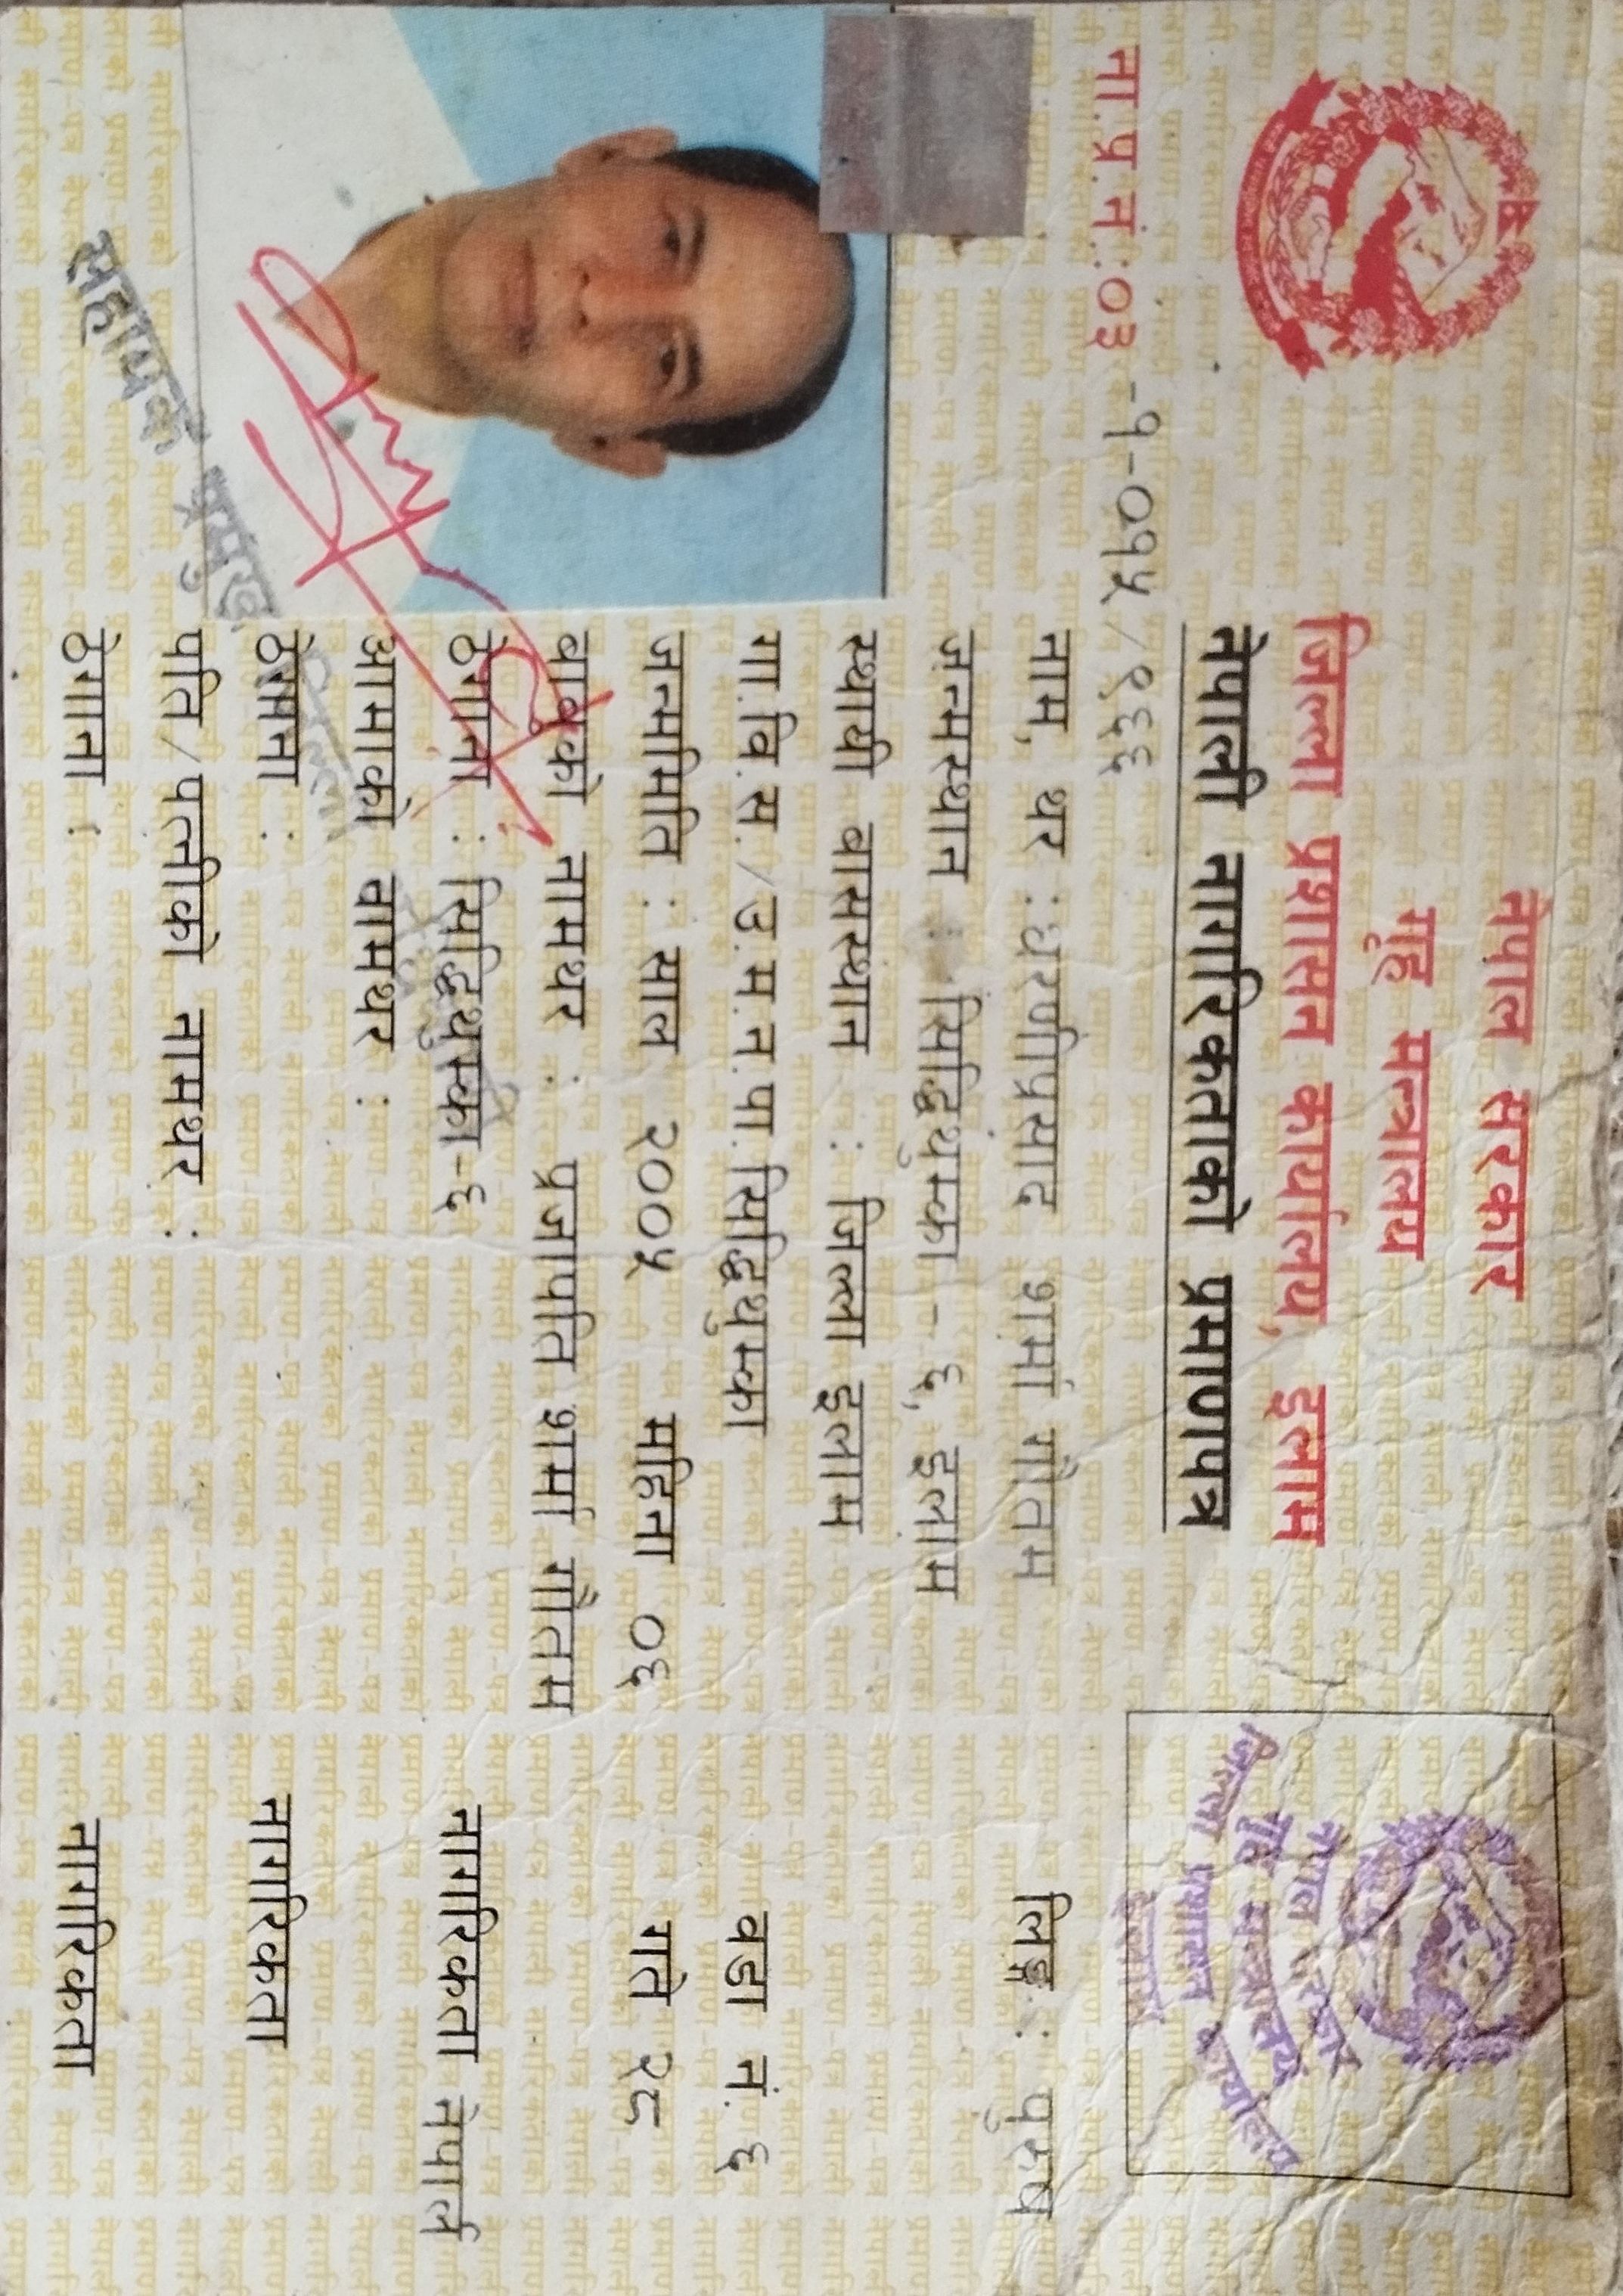 नेपाल सरकार
गृह मन्त्रालय
जिल्ला प्रशासन कार्यालय, इलाम
नेपाली नागरिकताको प्रमाणपत्र
नेपाल सरकार
गृह मन्त्रालय
जिल्ला प्रशासन कार्यालय
इलाम
ना.प्र.नं.:०३ -१-०१५/९६६
नाम, थर : धरणीप्रसाद शर्मा गौतम लिङ्ग : पुरुष
जन्मस्थान : सिद्धिथुम्का - ६, इलाम
स्थायी वासस्थान : जिल्ला इलाम
गा.वि.स./उ.म.न.पा. सिद्धिथुम्का वडा नं. ६
जन्ममिति : साल २००५ महिना ०६ गते २८
बाबुको नामथर : प्रजापति शर्मा गौतम
ठेगाना : सिद्धिथुम्का-६ नागरिकता नेपाली
आमाको नामथर :
ठेगाना : नागरिकता
पति/पत्नीको नामथर :
ठेगाना : नागरिकता
सहायक प्रमुख